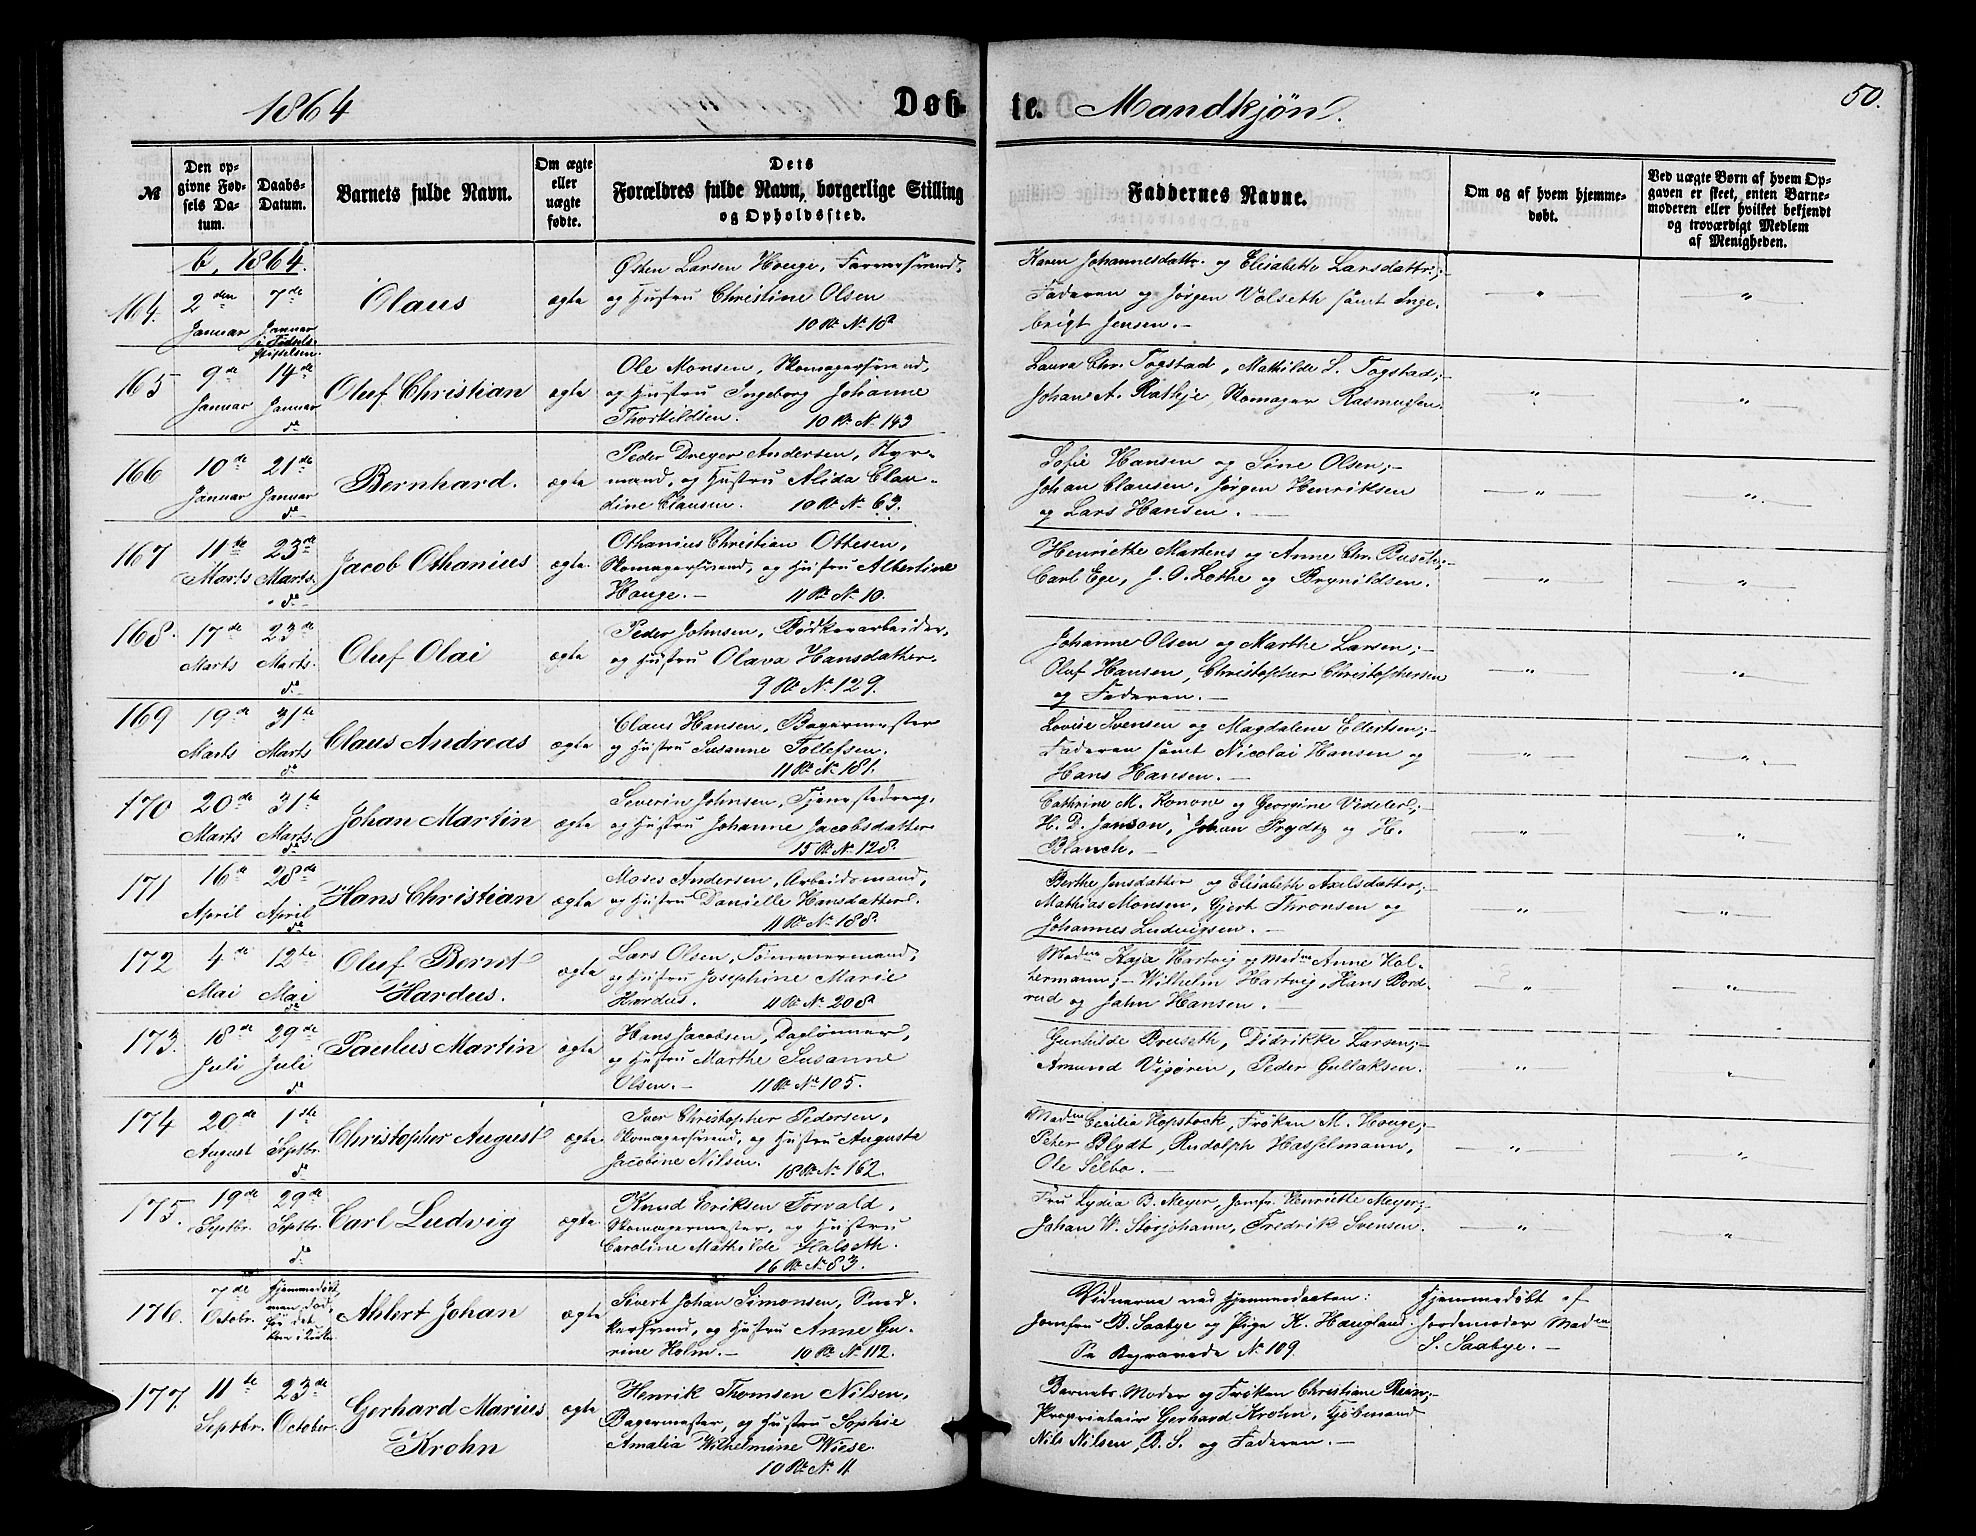 1864
Døb-
te. Mandkjøn.
50.
№
Den op-
givne Fød-
sels Da-
tum.
Daabs-
Datum.
Barnets fulde Navn.
Om ægte
eller
uægte
fødte.
Dets
Forældres fulde Navn, borgerlige Stilling
og Opholdssted.
Faddernes Navne.
Om og af hvem hjemme-
døbt.
Ved uægte Børn af hvem Op-
gaven er skeet, enten Barne-
moderen eller hvilket bekjendt
og troværdigt Medlem
af Menigheden.
b, 1864.
164. 2den Januar 7de Januar i Fødsels-
stiftelsen. Olaus ægte
Østen Larsen Houge, Farversvend,
og Hustru Christine Olsen
10 R. No 18
Karen Johannesdattr. og Elisabeth Larsdattr;
Faderen og Jørgen Volseth samt Inge-
brigt Jensen.-
165 9de Januar 14de Januar do Oluf Christian ægte
Ole Monsen, Skomagersvend,
og Hustru Ingeborg Johanne
Thorkildsen. 10 R. No 143
Laura Chr. Togstad, Mathilde L. Togstad;-
Johan A. Rathje, Skomager Rasmussen.
166 10de Januar 21de Januar do Bernhard. ægte
Peder Dreyer Andersen, Styr-
mand, og Hustru Alida Clau-
dine Clausen. 10 R. No 63.
Sofie Hansen og Sine Olsen;-
Johan Clausen, Jørgen Henriksen
og Lars Hansen.
167 11te Marts 23de Marts. do Jacob Othanius ægte.
Othanius Christian Ottesen,
Skomagersvend, og Hustru Albertine
Houge.- 11 R. No 10.
Henriette Martens og Anne Chr. Buseth;-
Carl Ege, J. O. Lothe og Brynildsen.
168. 17de Marts 23de Marts. do Oluf Olai ægte
Peder Johnsen, Bødkerarbeider,
og Hustru Olava Hansdatter.
9 R. No 129.
Johanne Olsen og Marthe Larsen;-
Oluf Hansen, Christopher Christophersen
og Faderen.-
169 19de Marts 31te Marts do Claus Andreas ægte
Claus Hansen, Bagermester
og Hustru Susanne Tollefsen.
11 R. No 181.
Lovise Svensen og Magdalene Ellertsen;-
Faderen samt Nicolai Hansen og
Hans Hansen.-
170 20de Marts 31te Marts. do Johan Martin ægte
Severin Johnsen, Tjenestedreng,
og Hustru Johanne Jacobsdatter
15 R. No 128.
Cathrine M. Konow og Georgine Videler;-
H. D. Janson, Johan Prydtz og H.
Blanch.-
171 16de April 28de April do Hans Christian ægte
Moses Andersen, Arbeidsmand,
og Hustru Danielle Hansdatter.
11 R. No 188.
Berthe Jensdatter og Elisabeth Axelsdatter;
Mathias Monsen, Gjert Thronsen og
Johannes Ludvigsen.-
172 4de Mai 12te Mai do Oluf Bernt
Hardus. ægte
Lars Olsen, Tømmermand,
og Hustru Josephine Marie
Hardus. 11 R. No 208
Madme Kaja Hartvig og Madme Anne Hol-
termann;- Wilhelm Hartvig, Hans Bord-
rud og Jahn Hansen.
173. 18de Juli 29de Juli do Paulus Martin ægte
Hans Jacobsen, Daglønner,
og Hustru Marthe Susanne
Olsen.- 11 R. No 105.
Gunhilde Bruseth, Didrikke Larsen;-
Amund Vigøren, Peder Gullaksen.
174 20de August 1ste Septbr. do Christopher August ægte
Iver Christopher Pedersen,
Skomagersvend, og Hustru Augusta
Jacobine Nilsen. 18 R. No 162.
Madme Cecilia Hopstock, Frøken M. Houge;-
Peter Blydt, Rudolph Hasselmann,
Ole Selbo.-
175. 19de Septbr. 29de Septbr. do Carl Ludvig ægte.
Knud Eriksen Torvald,
Skomagermester, og Hustru
Caroline Mathilde Halseth.
16 R. No 83.
Fru Lydia B. Meyer, Jomfr. Henriette Meyer;
Johan W. Storjohann, Fredrik Svensen.
176. 7de Octobr. Hjemmedøbt, Ahlert Johan ægte
Sivert Johan Simonsen, Sned-
kersvend, og Hustru Anne Gu-
rine Holm.- 10 R. No 112.
Vidnerne ved Hjemmedaaben:
Jomfru B. Saabye og Pige K. Haugland.
Se Begravede No 109.
Hjemmedøbt af
Jordemoder Madme
S. Saabye.-
177. 11te Septbr. 23de October. Gerhard Marius
Krohn ægte
Henrik Thomsen Nilsen,
Bagermester, og Hustru Sophie
Amalia Wilhelmine Wiese.
10 R. No 11
Barnets Moder og Frøken Christiane Rein;-
Proprietair Gerhard Krohn, Kjøbmand
Nils Nilsen, B. S. og Faderen.-